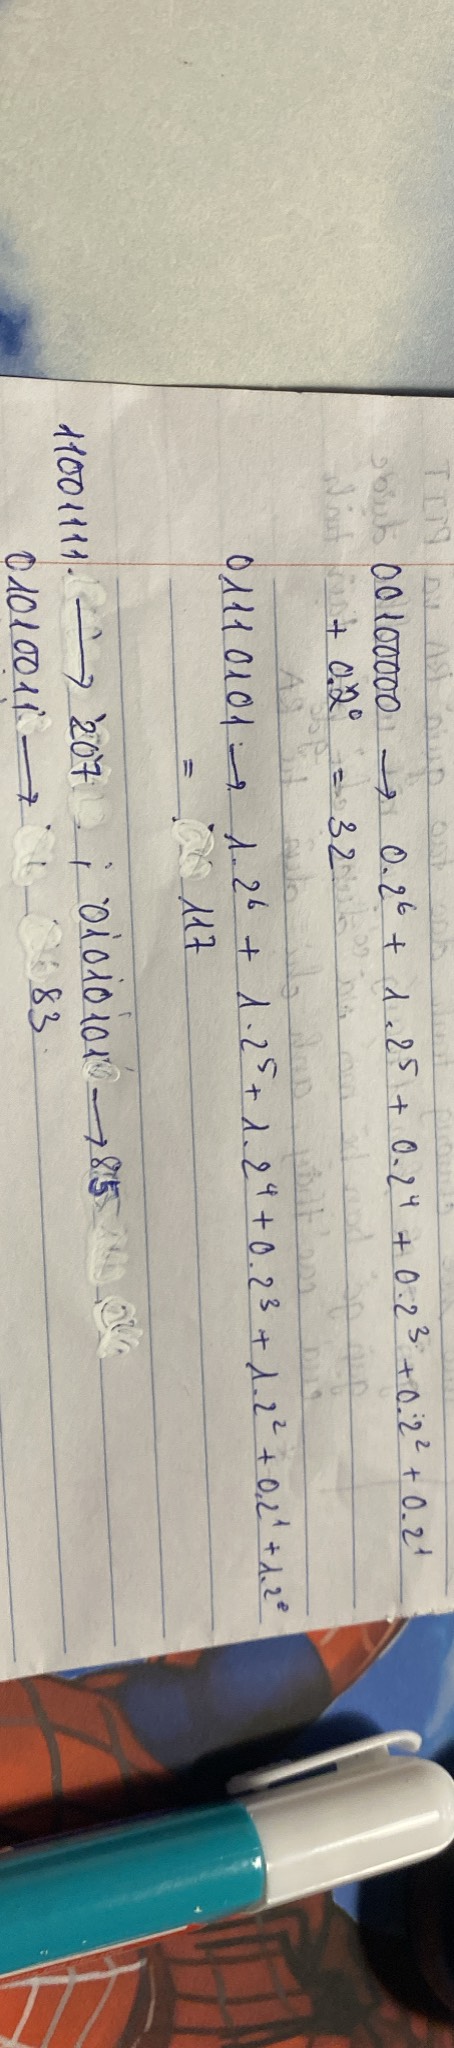 00100000 → 0.2⁶ + 1.2⁵ + 0.2⁴ + 0.2³ + 0.2² + 0.2¹
+ 0.2⁰ = 32
01110101 → 1.2⁶ + 1.2⁵ + 1.2⁴ + 0.2³ + 1.2² + 0.2¹ + 1.2⁰
= 117
11001111 → 207 ; 01010101 → 85
01010011 → 83